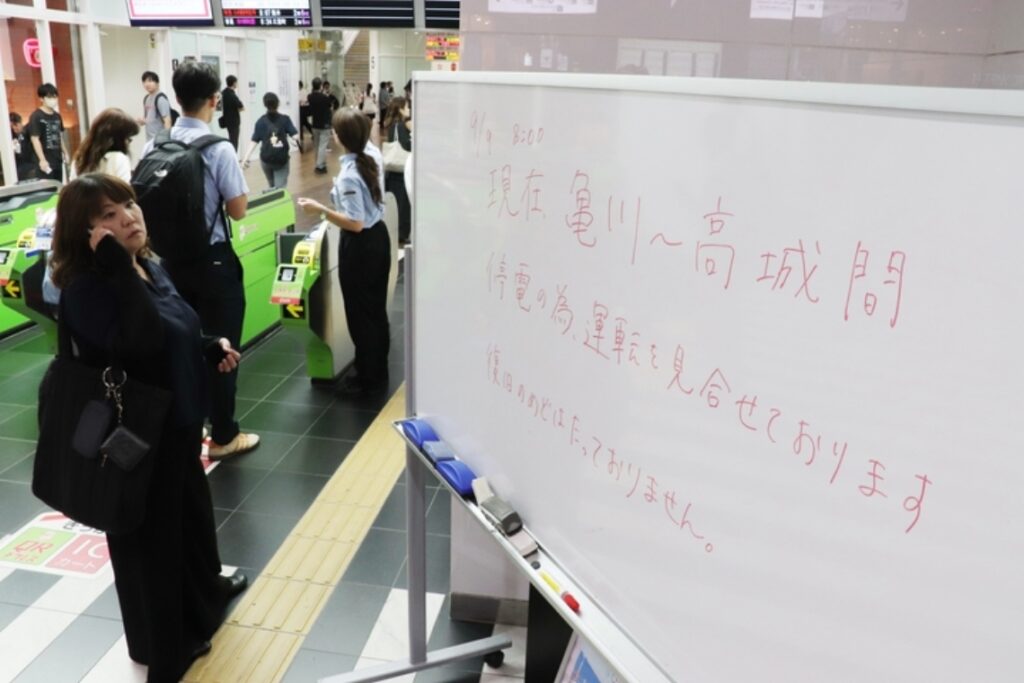 9/9 8:00
現在、亀川～高城間
停電の為、運転を見合せております
復旧のめどはたっておりません。
IC
カード